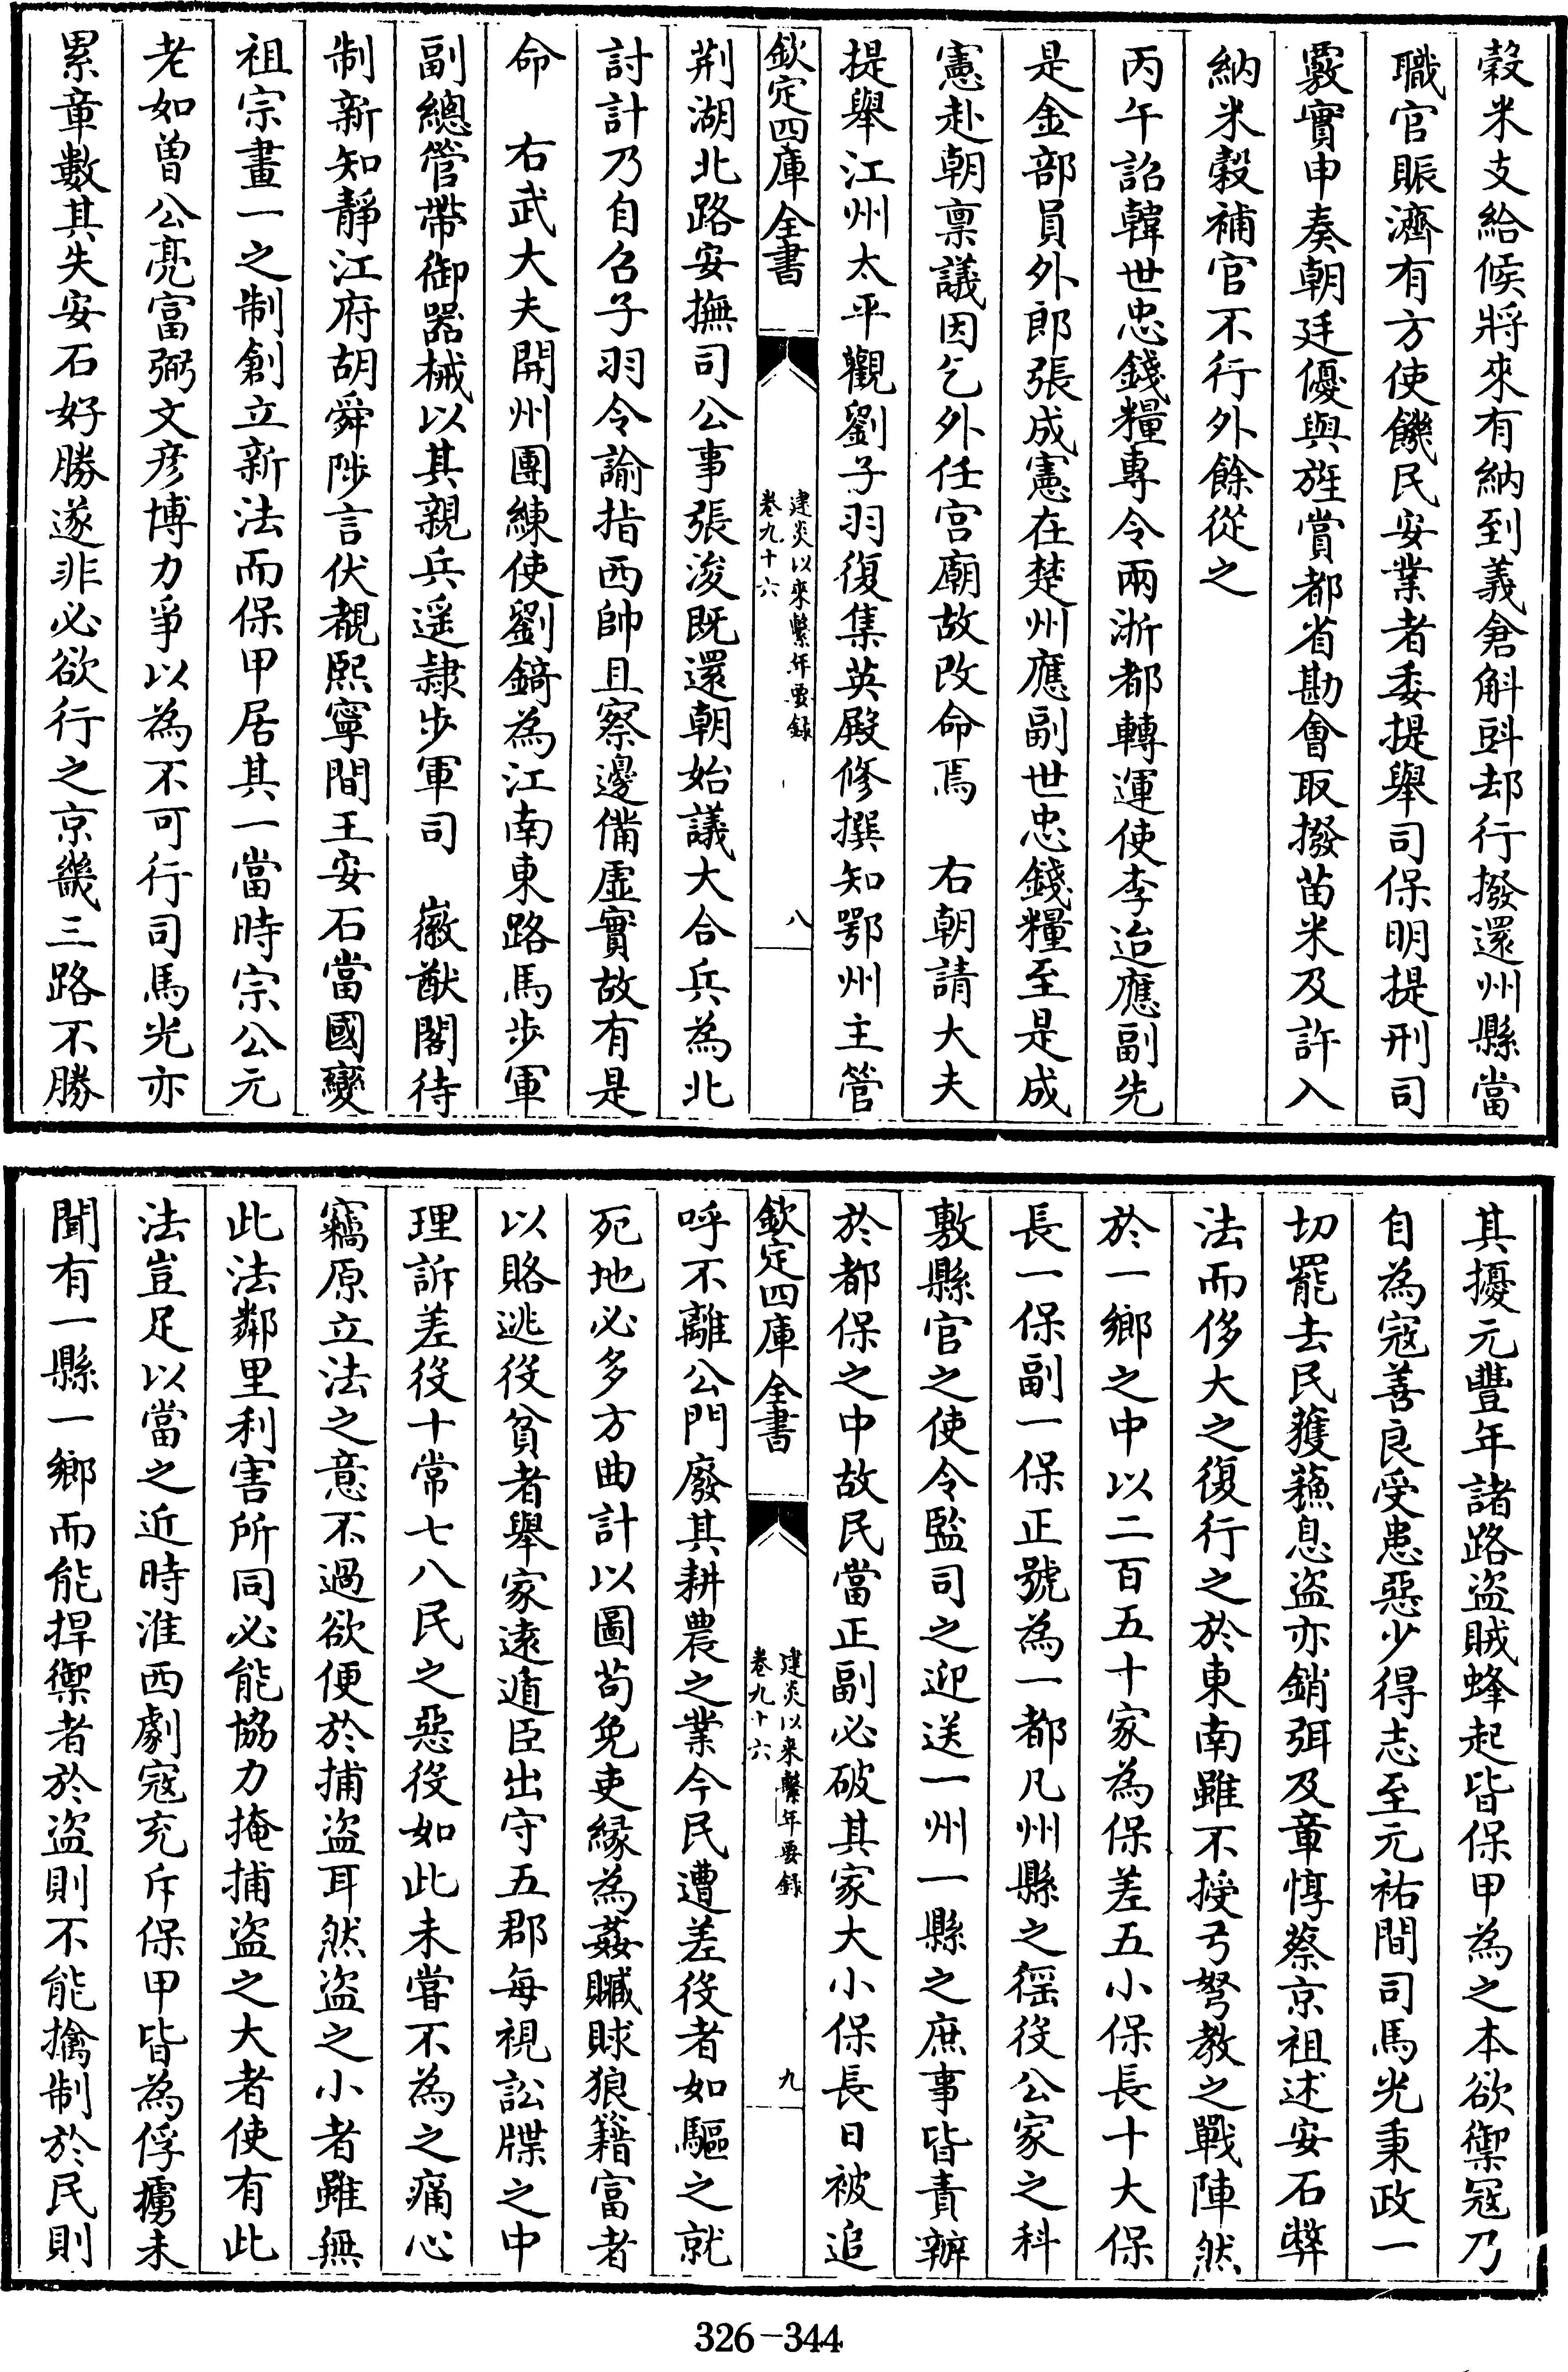 穀米支給候將來有納到義倉斛㪷却行撥還州縣當
職官賑濟有方使饑民安業者委提舉司保明提刑司
覈實申奏朝廷優與旌賞都省勘會取撥苗米及許入
納米穀補官不行外餘從之
丙午詔韓世忠錢糧專令兩浙都轉運使李迨應副先
是金部員外郎張成憲在楚州應副世忠錢糧至是成
憲赴朝禀議因乞外任宫廟故改命焉　右朝請大夫
提舉江州太平觀劉子羽復集英殿修撰知鄂州主管
欽定四庫全書
建炎以來繫年要錄
卷九十六
八
荆湖北路安撫司公事張浚既還朝始議大合兵為北
討計乃自召子羽令諭指西帥且察邊備虚實故有是
命　右武大夫開州團練使劉錡為江南東路馬步軍
副總管帶御器械以其親兵遥隷步軍司　徽猷閣待
制新知靜江府胡舜陟言伏覩熙寧間王安石當國變
祖宗畫一之制創立新法而保甲居其一當時宗公元
老如曾公亮富弼文彦博力爭以為不可行司馬光亦
累章數其失安石好勝遂非必欲行之京畿三路不勝
其擾元豐年諸路盜賊蜂起皆保甲為之本欲禦寇乃
自為寇善良受患惡少得志至元祐間司馬光秉政一
切罷去民獲蘓息盜亦銷弭及章惇蔡京祖述安石弊
法而侈大之復行之於東南雖不授弓弩教之戰陣然
於一鄉之中以二百五十家為保差五小保長十大保
長一保副一保正號為一都凡州縣之徭役公家之科
敷縣官之使令監司之迎送一州一縣之庶事皆責辦
於都保之中故民當正副必破其家大小保長日被追
欽定四庫全書
建炎以来繫年要錄
卷九十六
九
呼不離公門廢其耕農之業今民遭差役者如驅之就
死地必多方曲計以圖苟免吏緣為姦贓賕狼籍富者
以賂逃役貧者舉家遠遁臣出守五郡每視訟牒之中
理訴差役十常七八民之惡役如此未嘗不為之痛心
竊原立法之意不過欲便於捕盜耳然盜之小者雖無
此法鄰里利害所同必能協力掩捕盜之大者使有此
法豈足以當之近時淮西劇寇充斥保甲皆為俘擄未
聞有一縣一鄉而能捍禦者於盜則不能擒制於民則
326-344